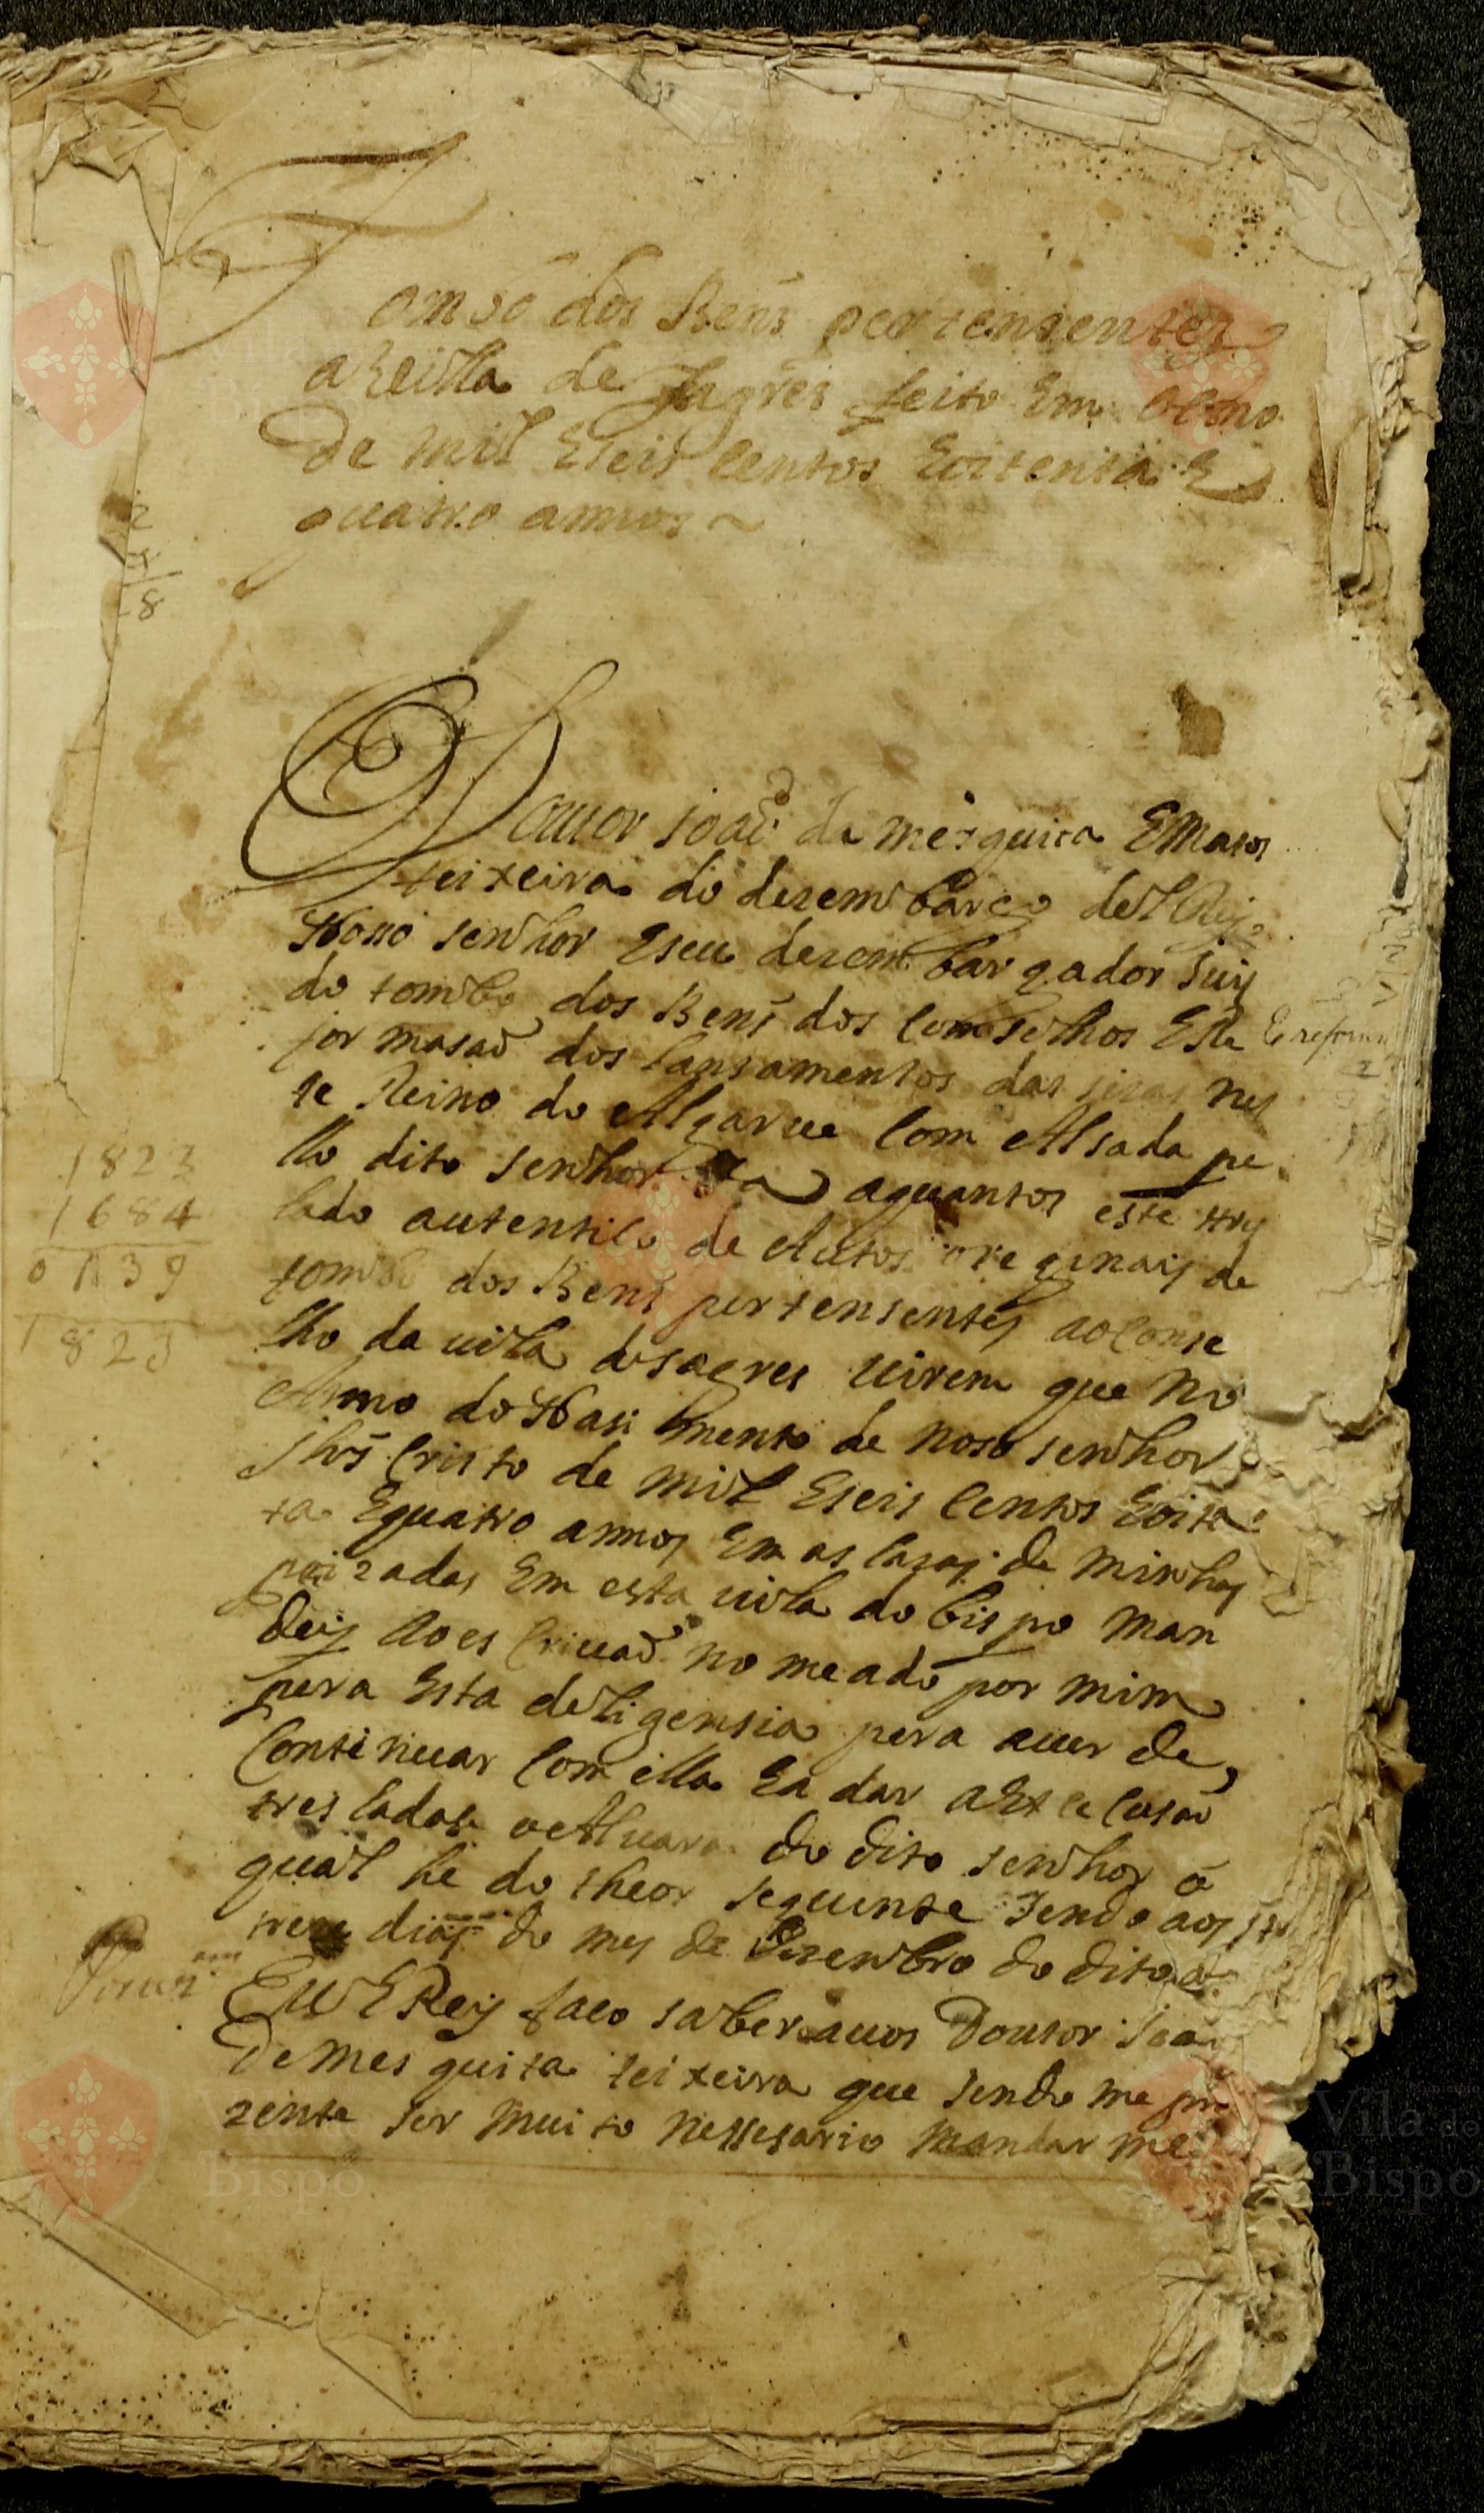 Tombo dos Bens pertensentes
a Veilla de Sagres feito Em o Anno
de mil Eseis Centos Eoitenta E
quatro annos ~
Doutor joaõ da mesquita EMatos
teixeira do desembargo delRej
Noso senhor Eseu desembargador juis
do tombo dos Bens dos Comselhos ERe
formasaõ dos lansamentos das sizas nes
te Reino do Algarue Com Alsada pe
llo dito senhor &a aquantos este tres
lado autentico de Autos oreginais de
tombo dos Bens pertensentes aoConse
lho da uilla desagres uirem que no
Anno do Nasimento de noso senhor
jhũs Cristo de mil Eseis Centos Eoiten
ta Equatro annos Em as Casas de minhas
pouzadas Em esta uilla do bispo man
dej aoesCriuaõ nomeado por mim
pera Esta deligensia pera auer de
Continuar Com ella Ea dar aExeCusaõ
tresladase oAluara do dito senhor o
qual he do theor seguinte sendo aos
treze dias do mes de Dezembro do dito
Eu ElRej faco saber auos Doutor Joaõ
de Mesquita teixeira que sendo me pre
zente ser muito nessesario mandar me
E reforma
1823
1684
0139
1823
8
Vila do
Bispo
Vila do
Bispo